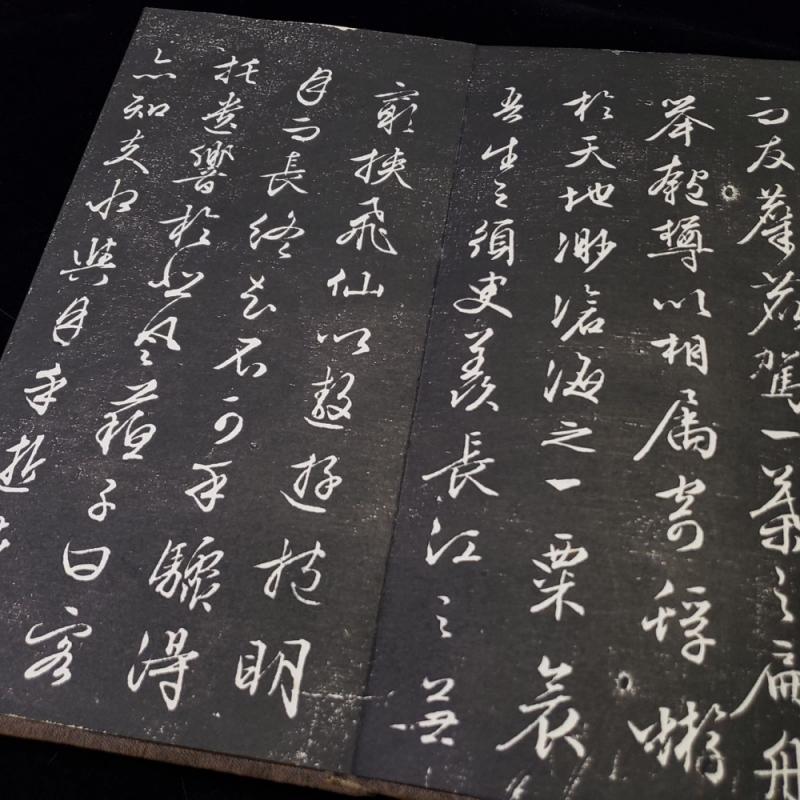 而友麋鹿駕一葉之扁舟
舉匏樽以相屬寄蜉蝣
於天地渺滄海之一粟哀
吾生之須臾羨長江之無
窮挾飛仙以遨遊抱明
月而長終知不可乎驟得
托遺響於悲風蘇子曰客
亦知夫水與月乎逝